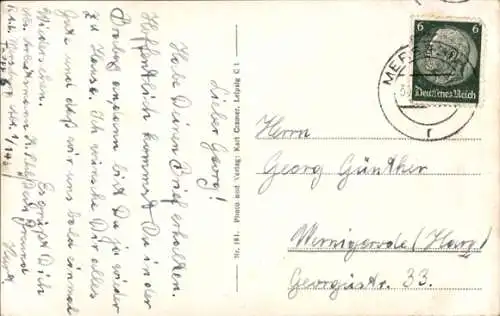 Lieber Georg!
Habe Deinen Brief erhalten.
Hoffentlich kommst Du in der
anfann bist Du ja wieder
zu Hause. Ich wünsche Dir alles
Gute und daß wir uns bald einmal
wiedersehen. Es grüßt Dich
Freund
Kurt
Nr. 181. Photo und Verlag: Karl Cramer, Leipzig C 1
6 6
Deutsches Reich
MERSE
r
Herrn
Georg Günther
Wernigerode (Harz)
Georgiistr. 33.